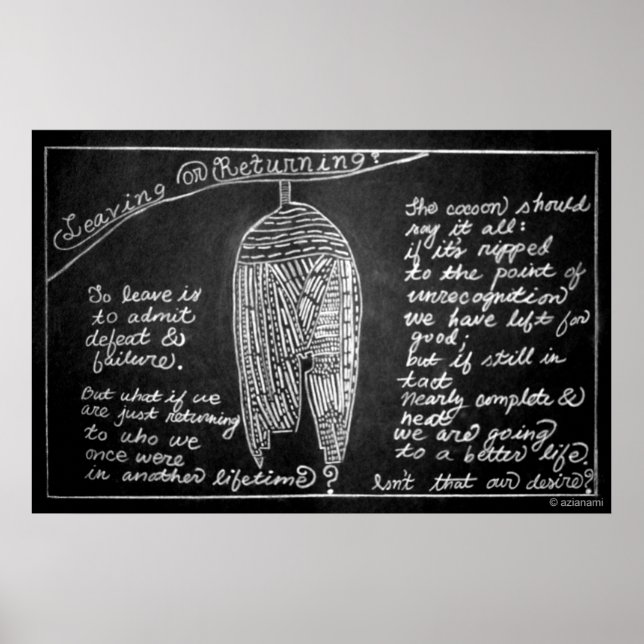 Leaving or Returning?
To leave is
to admit
defeat &
failure.
But what if we
are just returning
to who we
once were
in another lifetime?
The cocoon should
say it all:
if it's ripped
to the point of
unrecognition
we have left for
good;
but if still in
tact
nearly complete &
neat
we are going
to a better life.
Isn't that our desire?
© azianami